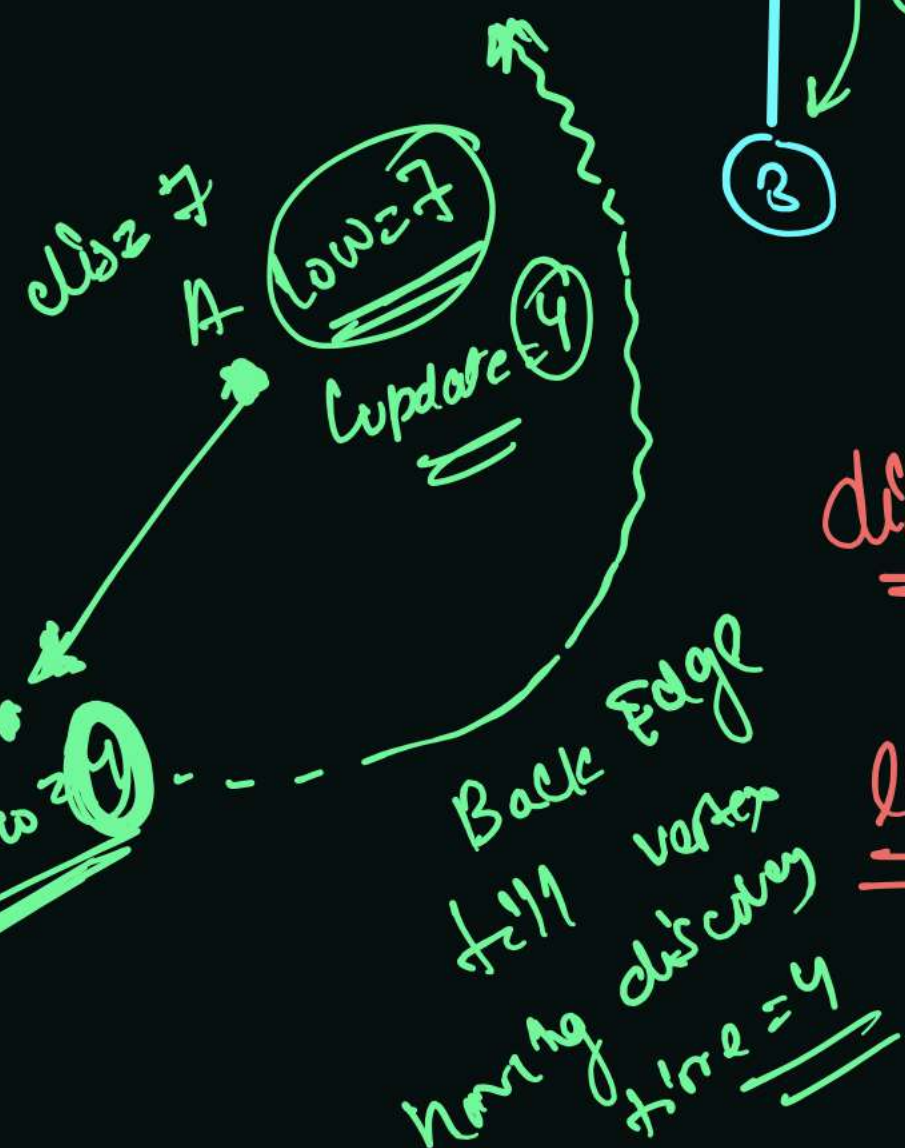 B
dis= 7
A
low= 7
update= 4
di
= 4
Back Edge
till vertex
having discovery
time = 4